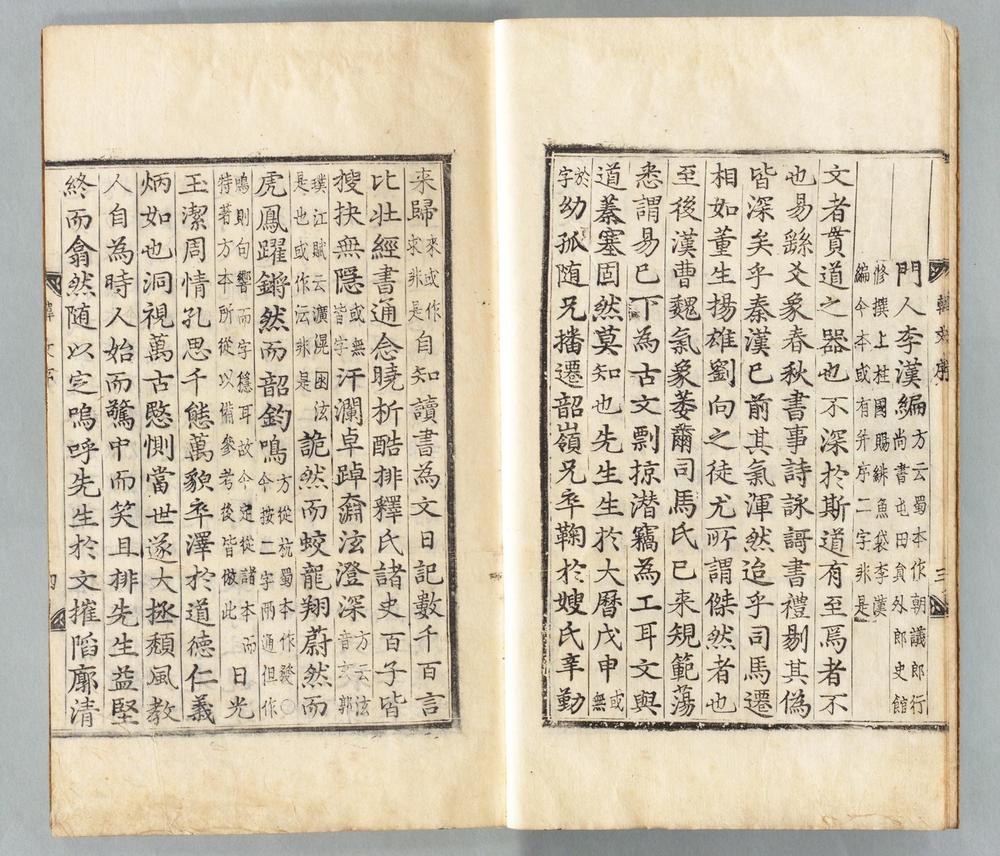 韓文序 三
門人李漢編方云蜀本作朝議郎行尚書屯田貟外郎史館
修撰上柱國賜緋魚袋李漢編今本或有并序二字非是
文者貫道之器也不深於斯道有至焉者不
也易繇爻象春秋書事詩詠謌書禮剔其偽
皆深矣乎秦漢已前其氣渾然迨乎司馬遷
相如董生揚雄劉向之徒尤所謂傑然者也
至後漢曹魏氣象萎薾司馬氏已来規範蕩
悉謂易已下為古文剽掠潜竊為工耳文與
道蓁塞固然莫知也先生生於大曆戊申或無
於字幼孤随兄播遷韶嶺兄卒鞠於嫂氏辛勤
来歸来或作求非是自知讀書為文日記數千百言
比壯經書通念曉析酷排釋氏諸史百子皆
搜抉無隱或無皆字汗瀾卓踔奫泫澄深方云泫音玄郭
璞江賦云澒滉囦泫是也或作沄非是詭然而蛟龍翔蔚然而
虎鳳躍鏘然而韶鈞鳴方從杭蜀本作發〇今按二字兩通但作
鳴則句響而字穩耳故今定從諸本而特著方本所從以備參考後皆倣此日光
玉潔周情孔思千態萬貌卒澤於道德仁義
炳如也洞視萬古愍惻當世遂大拯頹風教
人自為時人始而驚中而笑且排先生益堅
終而翕然随以定嗚呼先生於文摧陷廓清
韓文序 四